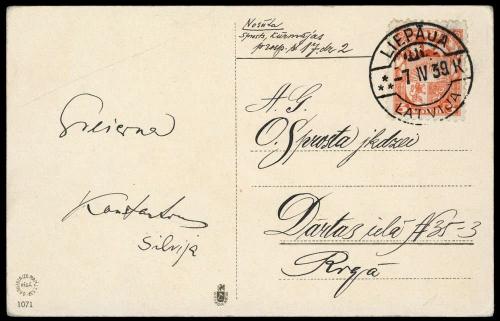 Nosūta
Sprosts, Kūrmājas
prosp. № 17. dz. 2
LIEPĀJA
-7 IV 39 K
LATVIJA
A. G.
O. Sprosta jkdzei
Dārtas ielā № 35-3
Rīgā
Silvija
1071